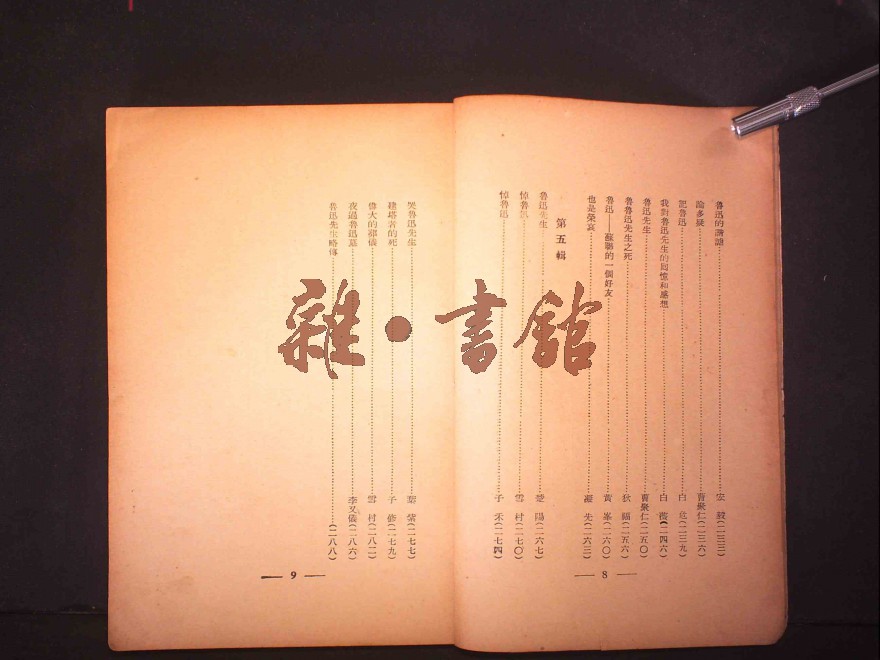 魯迅的諧謔……宏毅(二三三)
論多疑……曹聚仁(二三六)
記魯迅……白危(二三九)
我對魯迅先生的回憶和感想……白(二四六)
魯迅先生……曹聚仁(二五〇)
魯迅先生之死……狄福(二五六)
魯迅——蘇聯的一個好友……黃峯(二六〇)
也是榮哀……先(二六三)
第五輯
魯迅先生……楚陽(二六七)
悼魯迅……雪村(二七〇)
悼魯迅……子禾(二七四)
— 8 —
哭魯迅先生……葉紫(二七七)
建塔者的死……子修(二七九)
偉大的鄰儀……雪村(二八二)
夜過魯迅墓……李又儀(二八六)
魯迅先生略傳……(二八八)
— 9 —
雜·書館